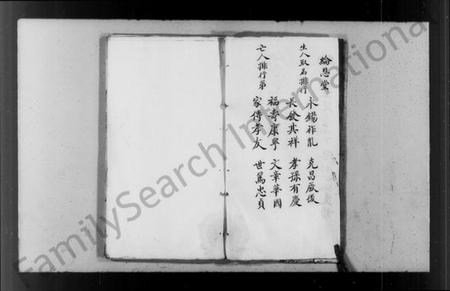 綸思堂
生人取名排行
永錫祚胤 克昌厥後
長發其祥 孝孫有慶
亡人排行第
福壽康寧 文章華國
家傳孝友 世篤忠貞
FamilySearch International